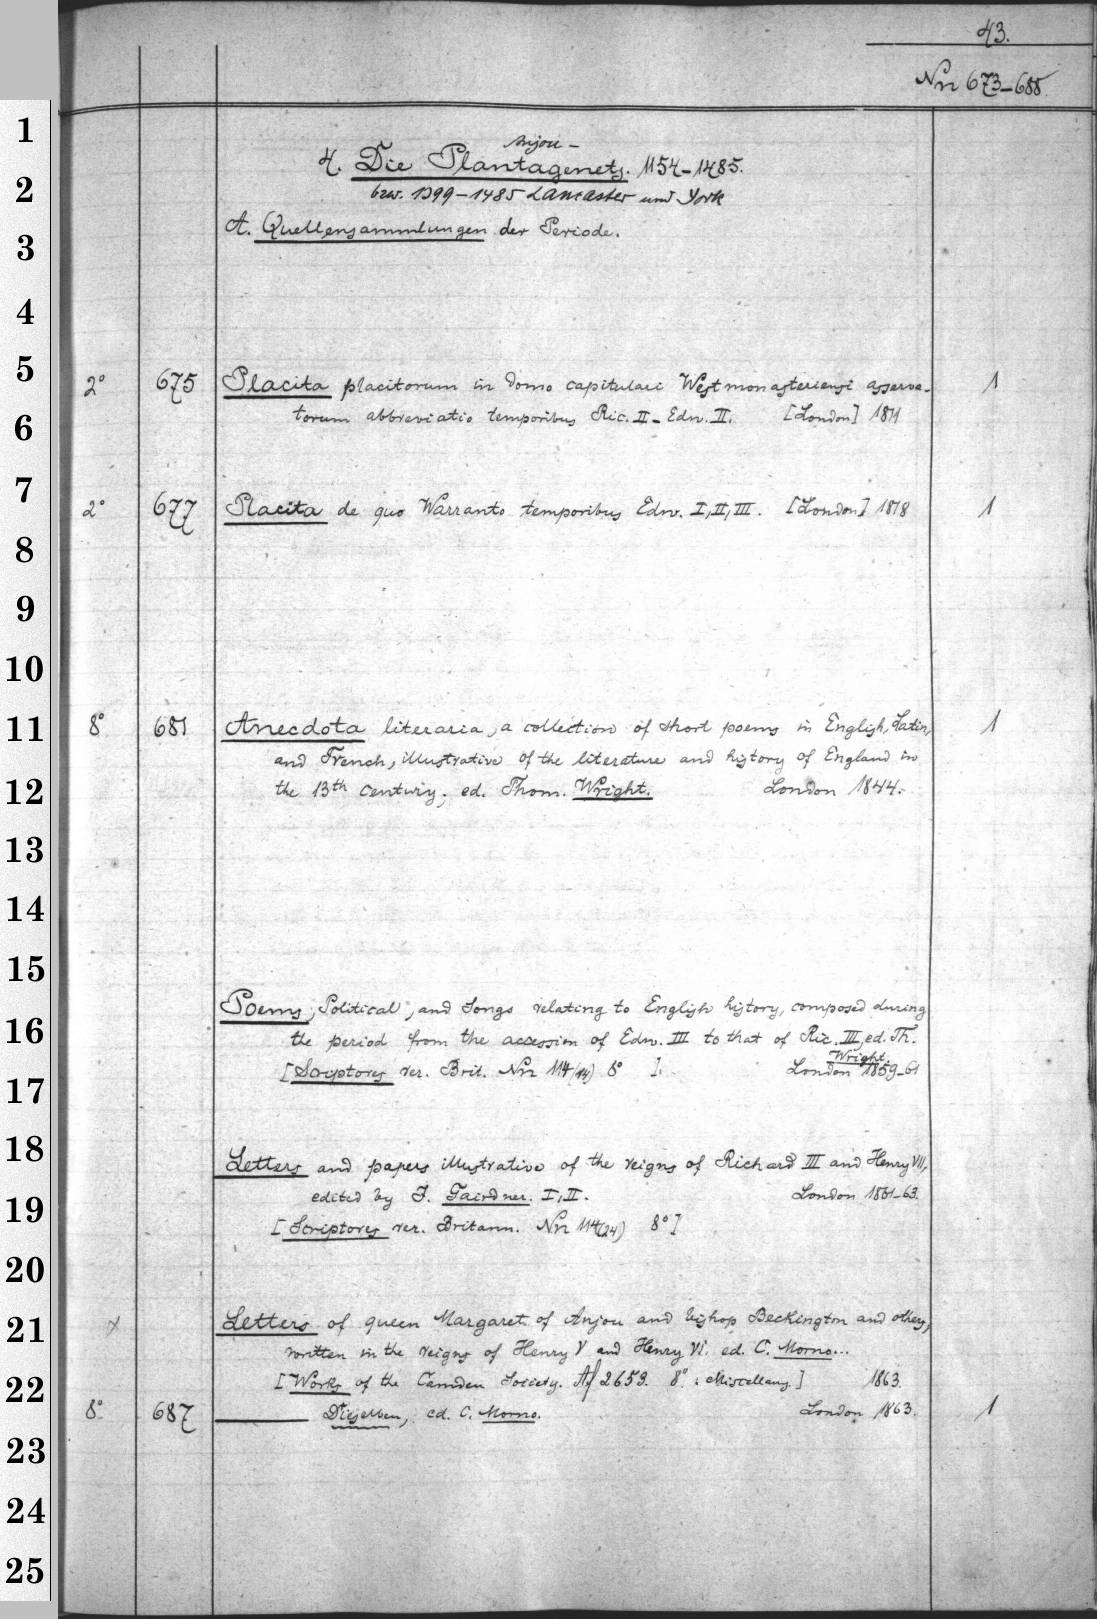 43.
Nrr 673–688.
Anjou –
4. Die Plantagenets. 1154–1485.
bzw. 1399–1485 Lancaster und York
A. Quellensammlungen der Periode.
2° 675 Placita placitorum in domo capitulari Westmonasteriensi asserva- 1
torum abbreviatio temporibus Ric. II – Edw. II. [London] 1811
2° 677 Placita de quo Warranto temporibus Edw. I, II, III. [London] 1818 1
8° 681 Anecdota literaria, a collection of short poems in English, Latin, 1
and French, illustrative of the literature and history of England in
the 13th century, ed. Thom. Wright. London 1844.
Poems, Political, and Songs relating to English history, composed during
the period from the accession of Edw. III to that of Ric. III, ed. Th.
Wright.
[Scriptores rer. Brit. Nrr 114(14) 8° ]. London 1859–61
Letters and papers illustrative of the reigns of Richard III and Henry VII,
edited by J. Gairdner. I, II. London 1861–63.
[Scriptores rer. Britann. Nrr 114(24) 8°]
Letters of queen Margaret of Anjou and bishop Beckington and others,
written in the reigns of Henry V and Henry VI. ed. C. Monro...
[Works of the Camden Society. 2659. 8°: Miscellany.] 1863.
8° 687 Dieselben, ed. C. Monro. London 1863. 1
1
2
3
4
5
6
7
8
9
10
11
12
13
14
15
16
17
18
19
20
21
22
23
24
25